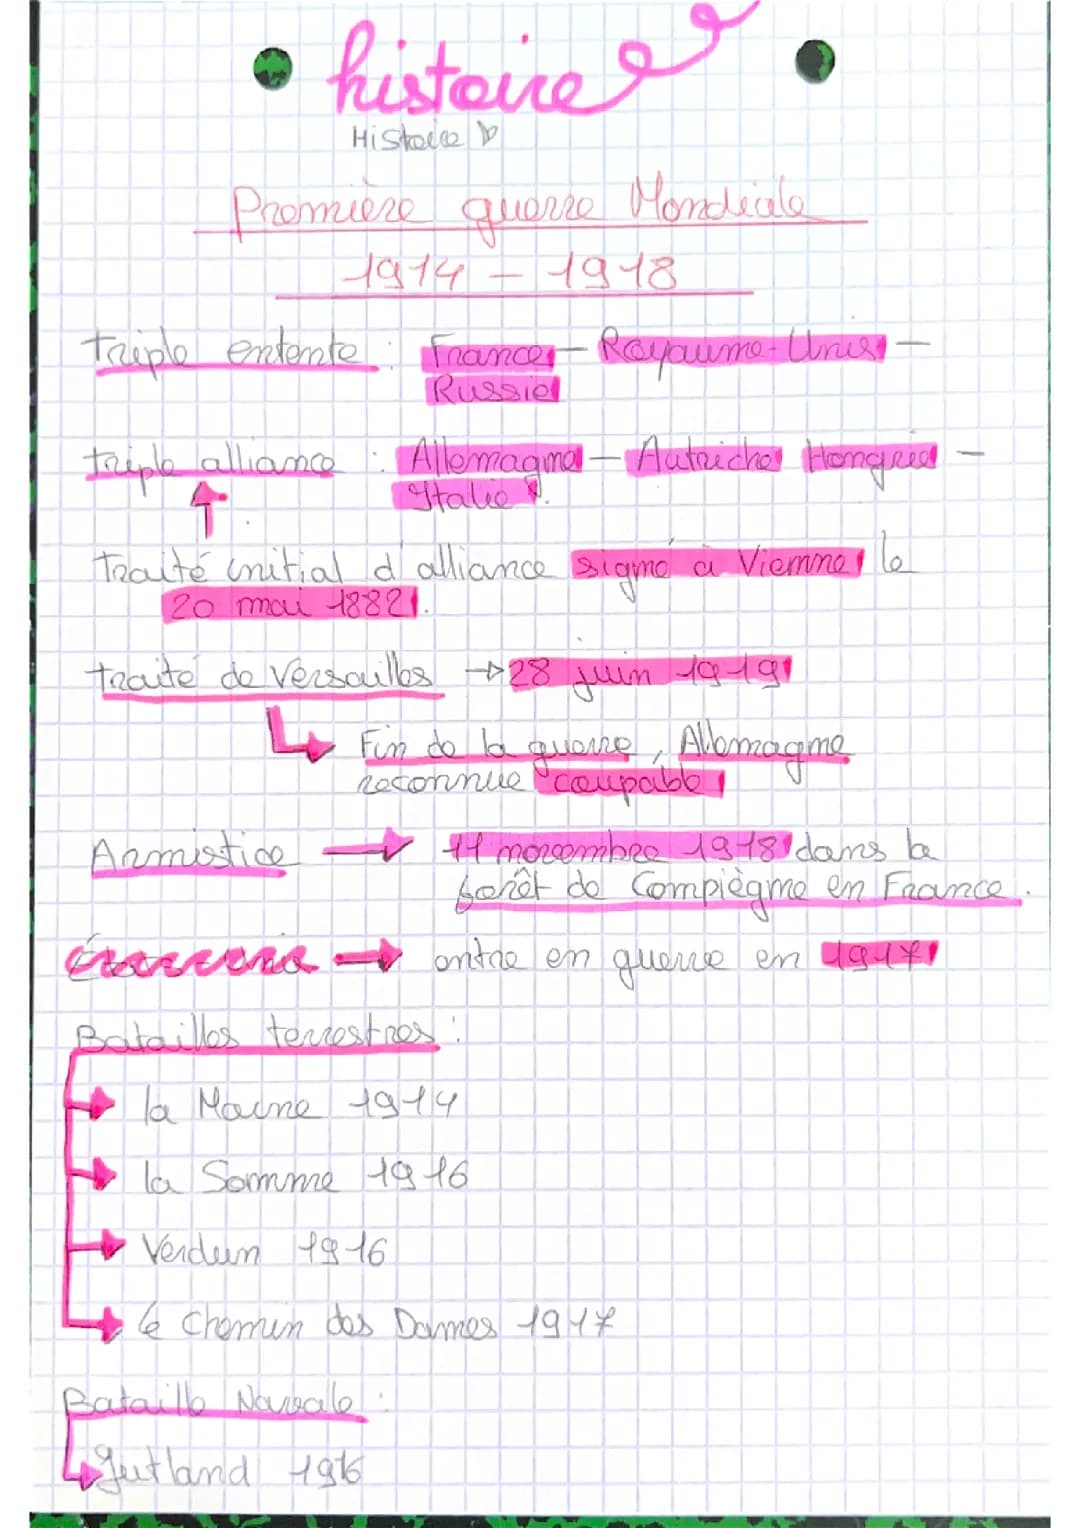 histoire
Histoire
Première guerre Mondiale
1914 - 1918
triple entente : France - Royaume-Unis -
Russie
triple alliance : Allemagne - Autriche Hongrie -
Italie.
Traité initial d'alliance signé à Vienne le
20 mai 1882.
traité de Versailles → 28 juin 1919
Fin de la guerre, Allemagne
reconnue coupable
Armistice → 11 novembre 1918 dans la
forêt de Compiègne en France.
→ entre en guerre en 1917
Batailles terrestres :
→ la Marne 1914
→ la Somme 1916
→ Verdun 1916
→ le Chemin des Dames 1917
Bataille Navale :
→ Jutland 1916